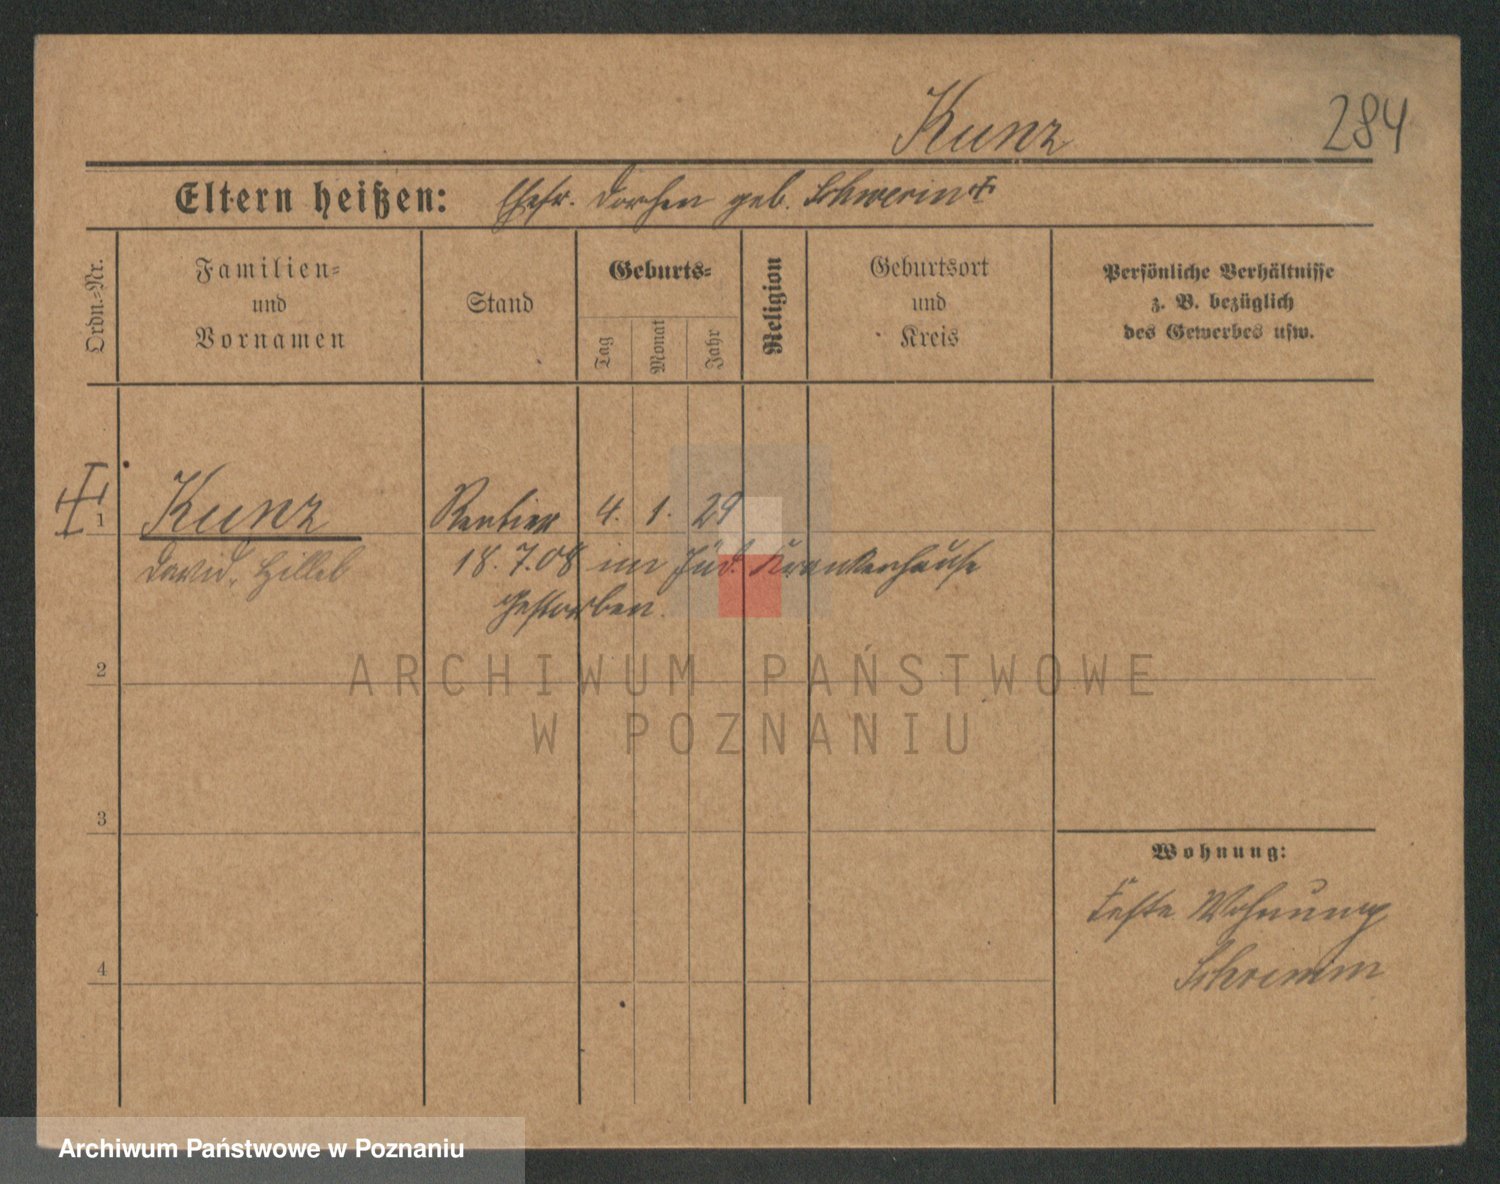 Kunz
284
Eltern heißen: Ehefr. Dorchen geb. Schwerin †
Ordn.-Nr.
Familien-
und
Vornamen
Stand
Geburts-
Tag
Monat
Jahr
Religion
Geburtsort
und
Kreis
Persönliche Verhältnisse
z. B. bezüglich
des Gewerbes usw.
1 Kunz Rentier 4. 1. 29
David, Hillel 18. 7. 08 im Jüd. Krankenhause
gestorben.
ARCHIWUM PAŃSTWOWE
W POZNANIU
2
3
Wohnung:
Feste Wohnung
Schrimm
4
Archiwum Państwowe w Poznaniu